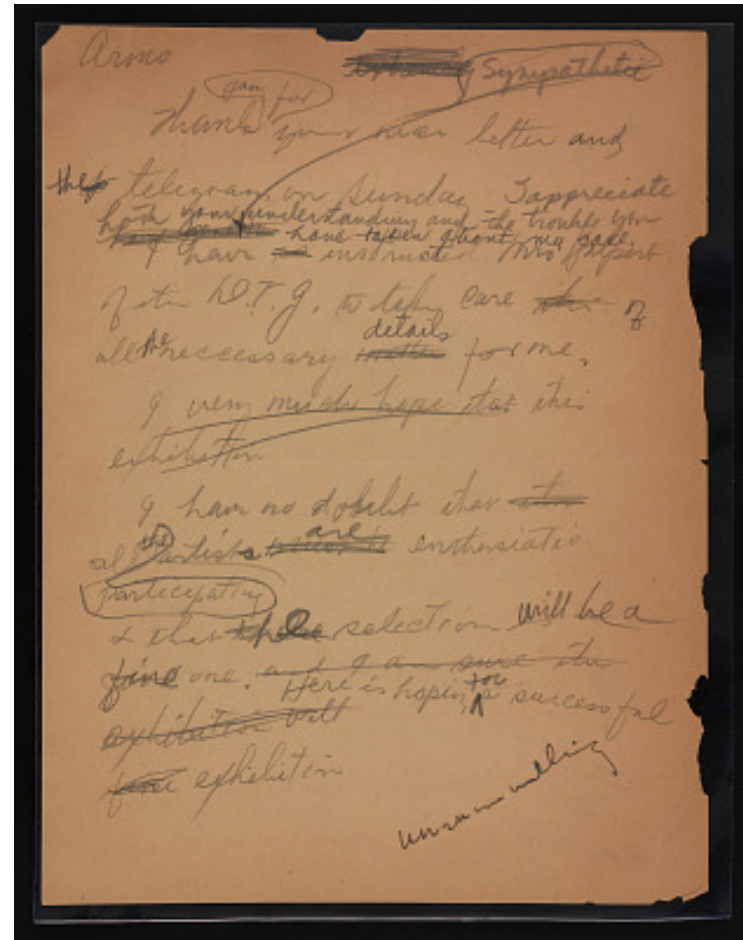 Arms
Sympathetic
you for
Thank your near letter and
the telegram on Sunday I appreciate
both your understanding and the trouble you
have taken about my case.
I have instructed Mrs Halpert
of the D.T.G. to take care of
all the neccessary details for me.
I very much hope that this
exhibition
I have no doubt that
all the artists are enthusiatic
participating
& that the selection will be a
fine one. and I am sure the
Here is hoping for a successful
exhibition will
fine exhibition